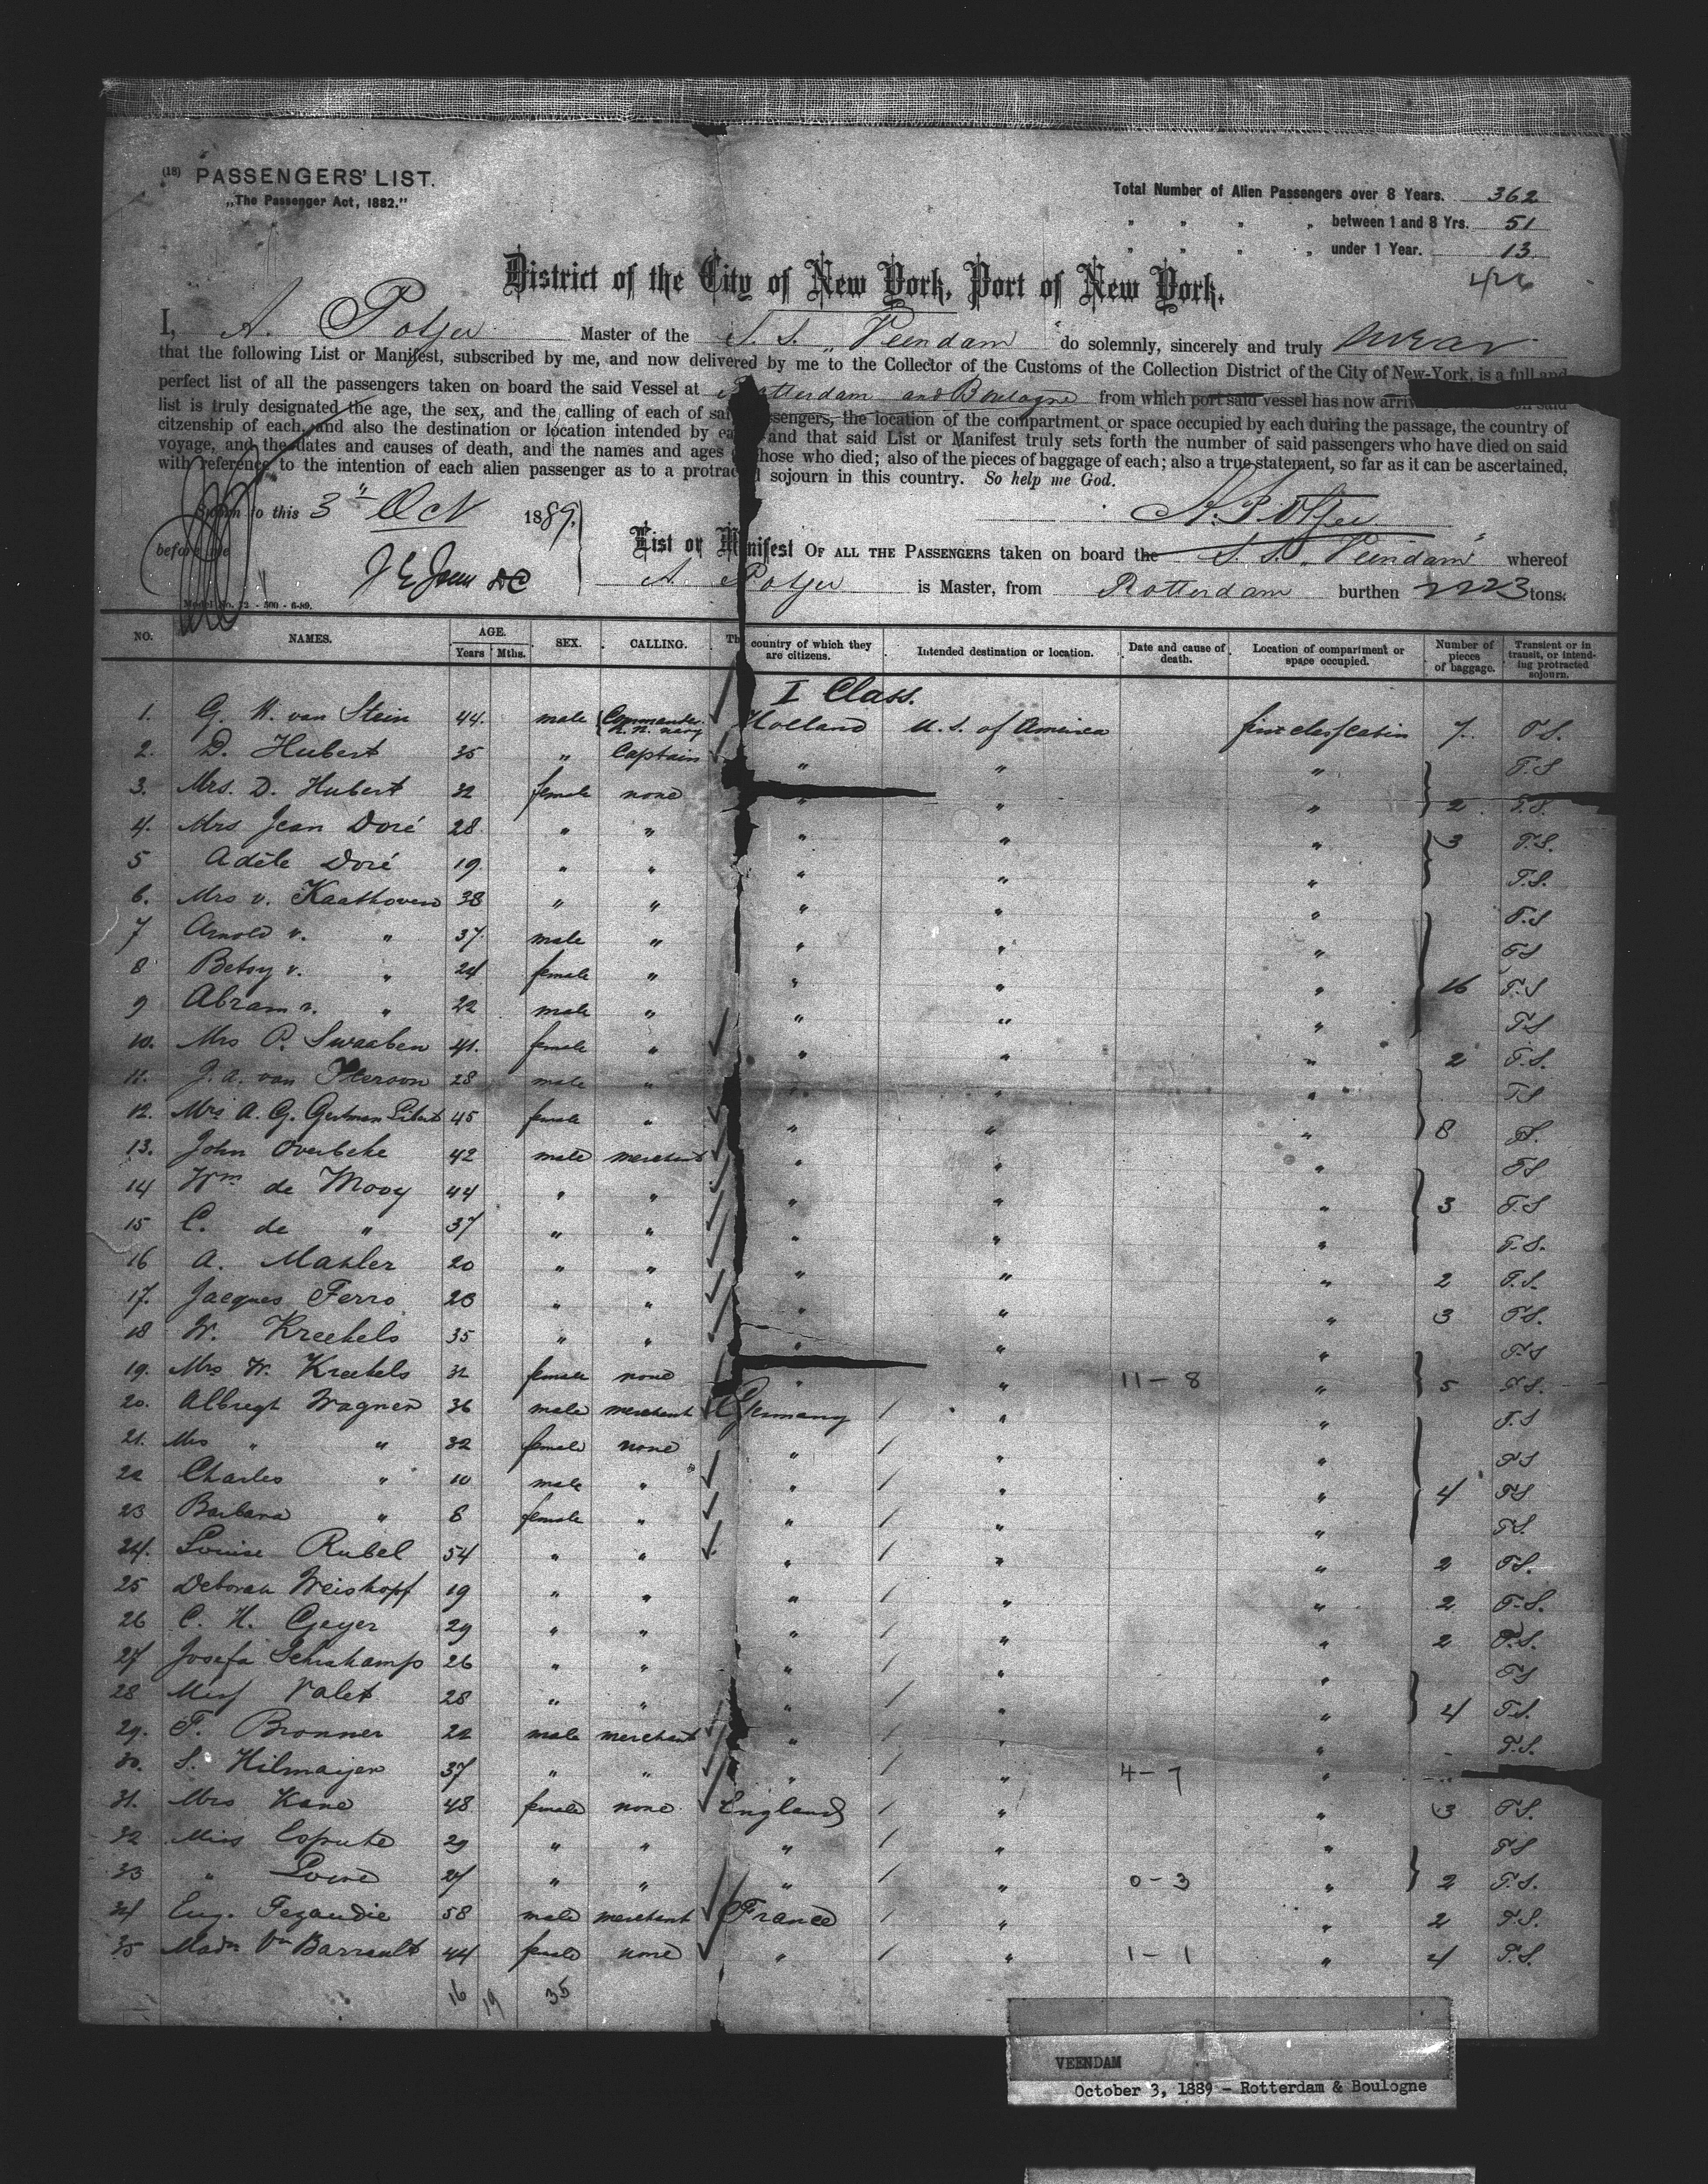 (18) PASSENGERS' LIST.
„The Passenger Act, 1882."
Total Number of Alien Passengers over 8 Years. 362
" " " " between 1 and 8 Yrs. 51
" " " " under 1 Year. 13
426
District of the City of New York, Port of New York.
I, A. Potjer Master of the S. S. „Veendam" do solemnly, sincerely and truly swear
that the following List or Manifest, subscribed by me, and now delivered by me to the Collector of the Customs of the Collection District of the City of New-York, is a full and
perfect list of all the passengers taken on board the said Vessel at Rotterdam and Boulogne from which port said vessel has now
list is truly designated the age, the sex, and the calling of each of said passengers, the location of the compartment or space occupied by each during the passage, the country of
citzenship of each, and also the destination or location intended by each and that said List or Manifest truly sets forth the number of said passengers who have died on said
voyage, and the dates and causes of death, and the names and ages those who died; also of the pieces of baggage of each; also a true statement, so far as it can be ascertained,
with reference to the intention of each alien passenger as to a protracted sojourn in this country. So help me God.
Sworn to this 3" Oct 1889, A. Potjer
before me
List or Manifest OF ALL THE PASSENGERS taken on board the S. S. „Veendam" whereof
A. Potjer is Master, from Rotterdam burthen 2223 tons.
Model No. 12 - 500 - 6-89.
NO. NAMES. AGE. Years Mths. SEX. CALLING. The country of which they are citizens. Intended destination or location. Date and cause of death. Location of compartment or space occupied. Number of pieces of baggage. Transient or in transit, or intending protracted sojourn.
I Class.
1. G. H. van Stein 44. male Commander R. N. navy Holland U. S. of America first class cabin 7. P.S.
2. D. Hubert 35 " Captain " " " P.S
3. Mrs. D. Hubert 32 female none " " " 2 P.S.
4. Mrs Jean Doré 28 " " " " " 3 P.S.
5 Adèle Doré 19 " " " " " P.S.
6. Mrs v. Kaathoven 38 " " " " " P.S
7 Arnold v. " 37. male " " " " PS
8 Betsy v. " 24 female " " " " 16 P.S
9 Abram v. " 22 male " " " " P.S
10. Mrs P. Swaaben 41. female " " " " 2 P.S.
11. J. A. van Iterson 28 male " " " " PS
12. Mrs A. G. 45 female " " " " 8 P.S.
13. John Overbeke 42 male merchant " " " PS
14 Wm de Mooy 44 " " " " " 3 P.S
15 C. de " 37 " " " " " P.S.
16 A. Mahler 20 " " " " " 2 P.S.
17. Jacques Ferro 28 " " " " " 3 P.S.
18 W. Kreekels 35 " " " " " P.S
19. Mrs W. Kreekels 32 female none " " 11 - 8 " 5 P.S.
20. Albregt Wagner 36 male merchant Germany / " " P.S
21. Mrs " " 32 female none " / " " P.S
22 Charles " 10 male " " / " " 4 P.S
23 Barbara " 8 female " " / " " P.S.
24. Louise Rubel 54 " " " / " " 2 P.S.
25 Deborah Weishopf 19 " " " / " " 2 P.S.
26 C. H. Geyer 29 " " " / " " 2 P.S.
27 Josefa Schuhkamp 26 " " " / " " PS
28 Miss Valet 28 " " " / " " 4 P.S.
29. F. Bronner 22 male merchant " / " " - P.S.
30. S. Hilmaijer 37 " " " / " 4 - 7 "
31. Mrs Kane 48 female none England / " " 3 P.S.
32 Miss Espute 29 " " " / " " P.S
33 " Loire 27 " " " / " 0 - 3 " 2 P.S.
34 Eug. Fezandie 58 male merchant France / " " 2 P.S.
35 Madm Vn Barrault 44 female none " / " 1 - 1 " 4 P.S.
16 19 35
VEENDAM
October 3, 1889 - Rotterdam & Boulogne